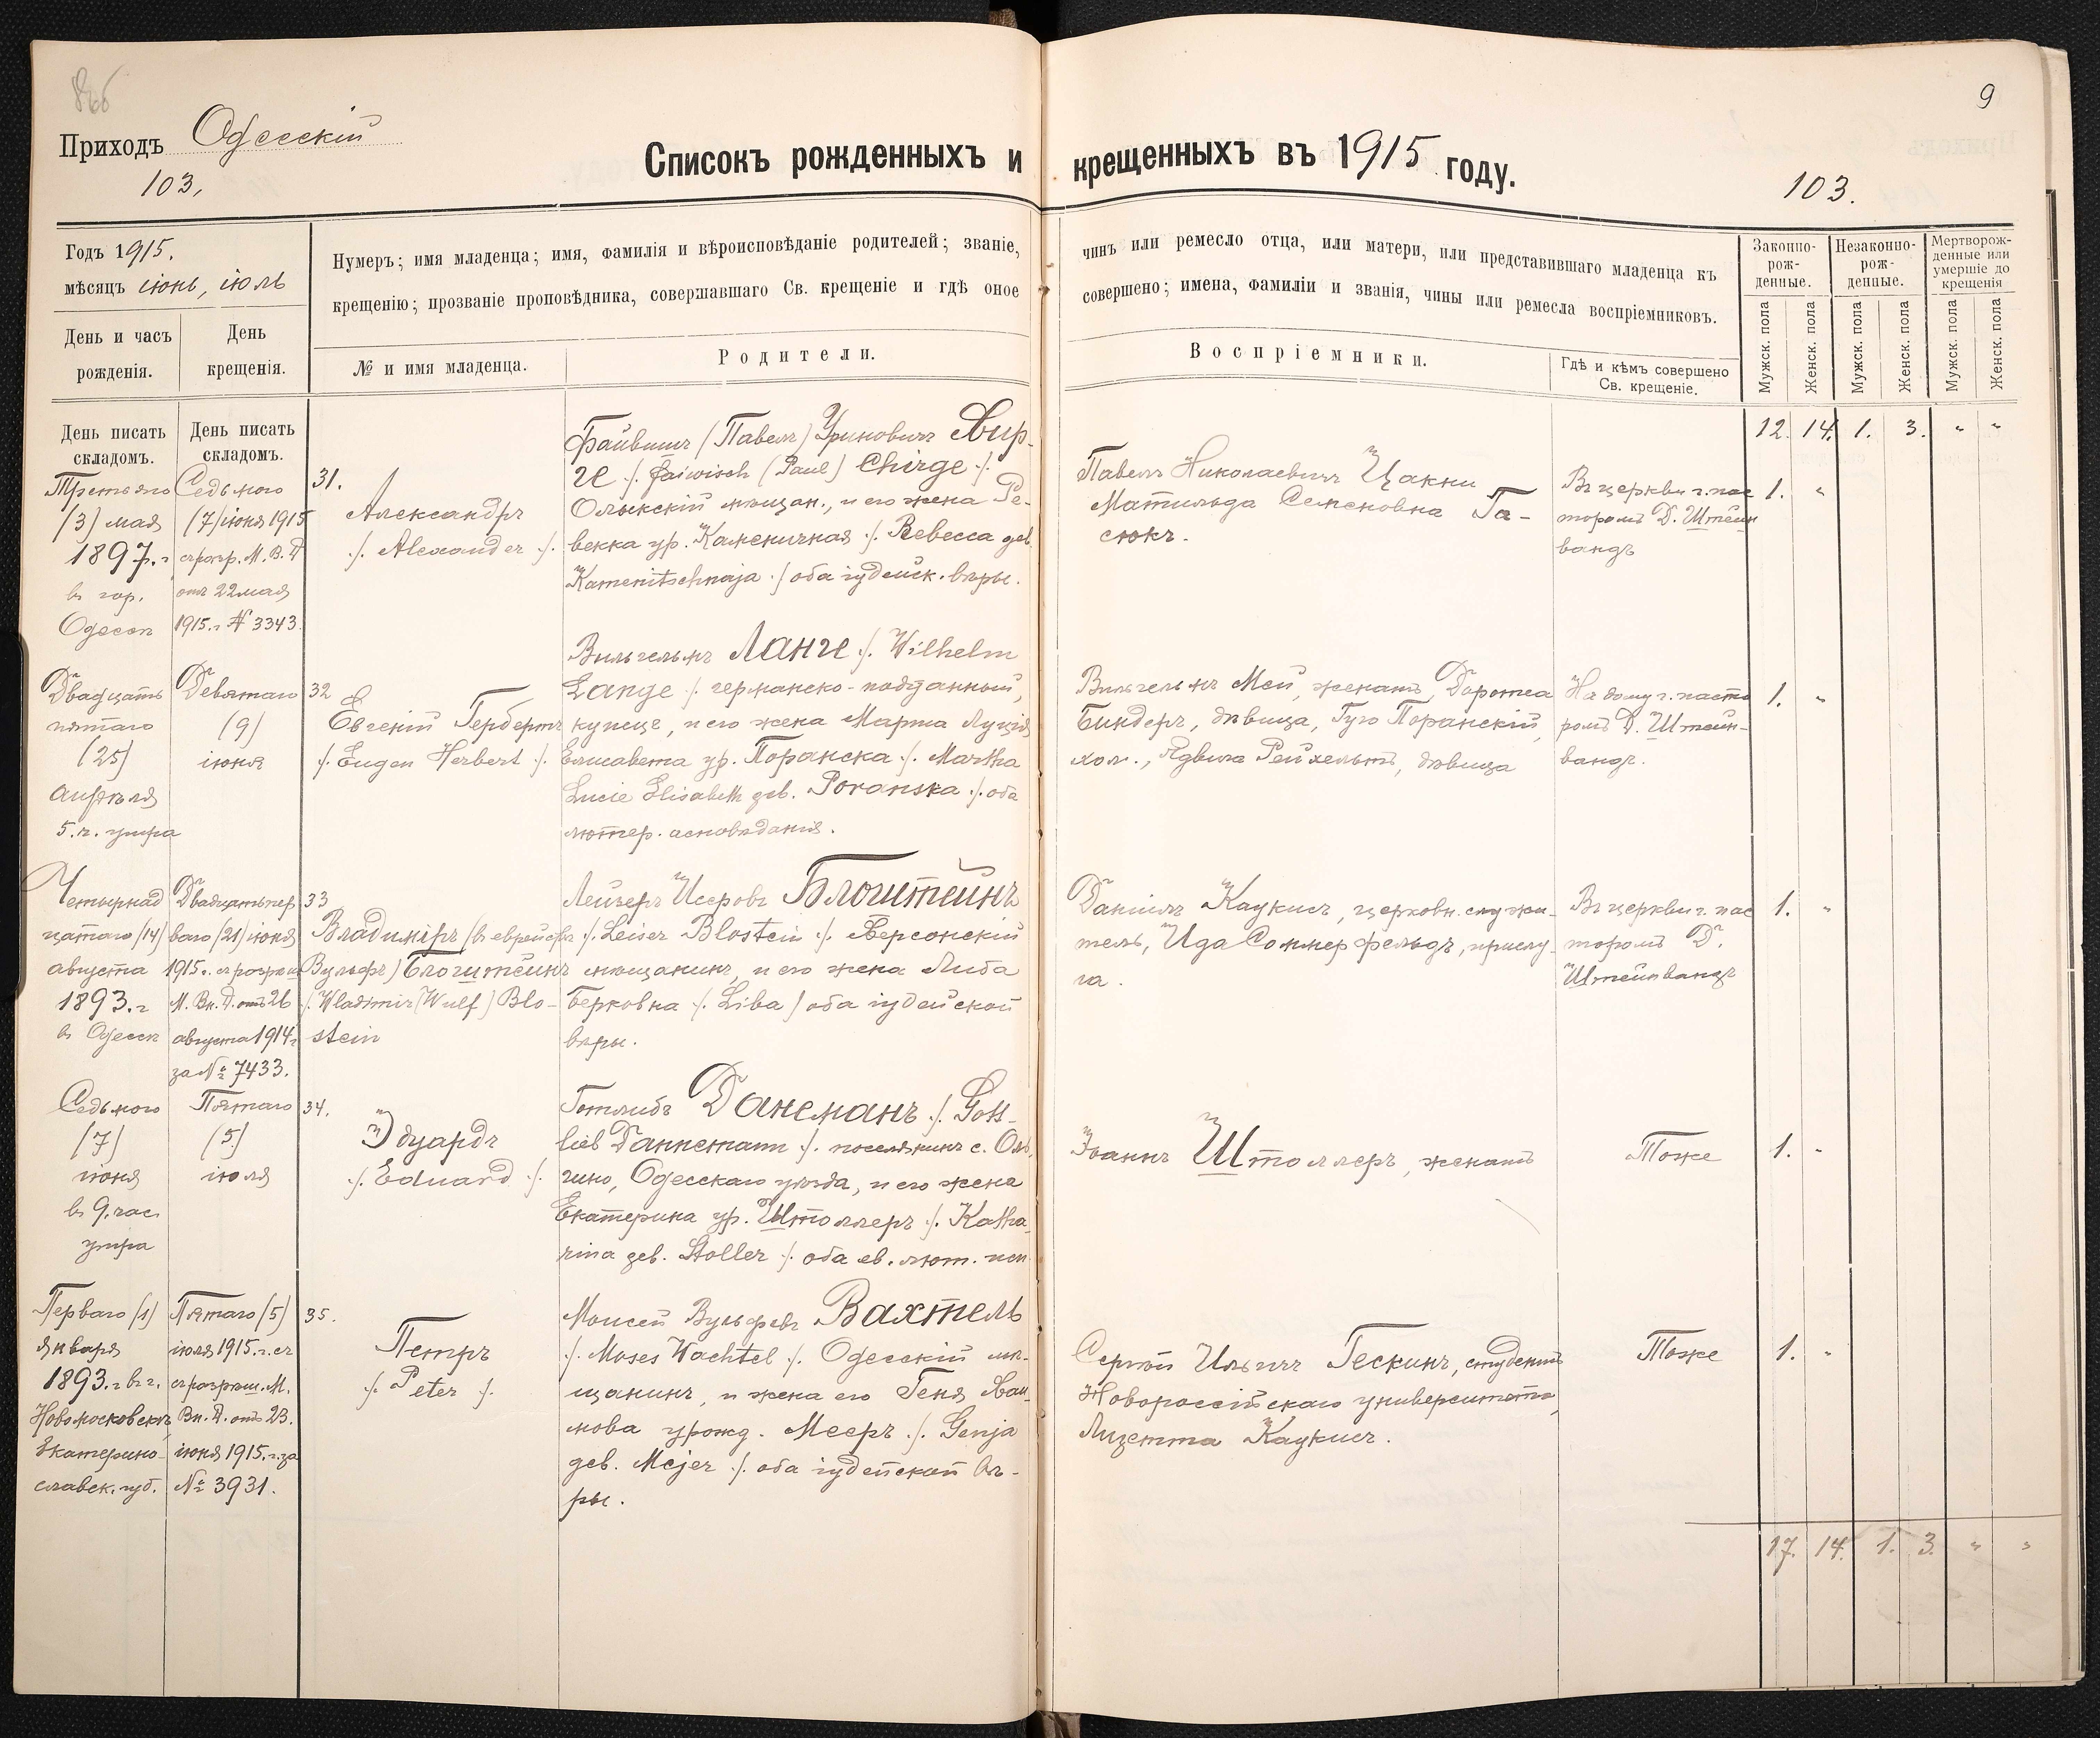 9
Приходъ Одесскій
103.
Списокъ рожденныхъ и крещенныхъ въ 1915 году.
103.
Годъ 1915.
мѣсяцъ іюнь, іюль
День и часъ рожденія.
День крещенія.
Нумеръ; имя младенца; имя, фамилія и вѣроисповѣданіе родителей; званіе, чинъ или ремесло отца, или матери, или представившаго младенца къ
крещенію; прозваніе проповѣдника, совершавшаго Св. крещеніе и гдѣ оное совершено; имена, фамиліи и званія, чины или ремесла воспріемниковъ.
№ и имя младенца.
Родители.
Воспріемники.
Гдѣ и кѣмъ совершено
Св. крещеніе.
Законно-
рож-
денные.
Незаконно-
рож-
денные.
Мертворож-
денные или
умершіе до
крещенія
Мужск. пола
Женск. пола
Мужск. пола
Женск. пола
Мужск. пола
Женск. пола
День писать
складомъ.
День писать
складомъ.
12. 14. 1. 3. " "
Третьяго
(3) мая
1897.г
въ гор.
Одессѣ
Седьмого
(7) іюня 1915
съ разр. М. В. Д
отъ 22 мая
1915.г № 3343.
31.
Александръ
./. Alexander ./.
Файвишъ (Павелъ) Уриновичъ Хир-
ге ./. Faiwisch (Paul) Chirge ./.
Олыкскій мѣщан., и его жена Ре-
векка ур. Каменичная ./. Rebecca geb.
Kamenitschnaja ./. оба іудейск. вѣры.
Павелъ Николаевичъ Цакни
Матильда Семеновна Га-
сюкъ.
Въ церкви г. пас
торомъ Д. Штейн
вандъ
1. "
Двадцать
пятаго
(25)
апрѣля
5. ч. утра
Девятаго
(9)
іюня
32
Евгеній Гербертъ
./. Eugen Herbert ./.
Вильгельмъ Ланге ./. Wilhelm
Lange ./. германско-подданный,
купецъ, и его жена Марта Луція
Елисавета ур. Поранска ./. Martha
Lucie Elisabeth geb. Poranska ./. оба
лютер. исповѣданія.
Вильгельмъ Мей, женатъ, Доротеа
Биндеръ, дѣвица, Гуго Поранскій,
хол., Ядвига Рейхельтъ, дѣвица
На дому г. пасто
ромъ Д. Штейн-
вандъ.
1. "
Четырнад
цатаго (14)
августа
1893.г
въ Одессѣ
Двадцать пер
ваго (21) іюня
1915.г съ разрѣш
М. Вн. Д. отъ 26
августа 1914 г
за № 7433.
33
Владиміръ (въ еврействѣ
Вульфъ) Блоштейнъ
./. Wladimir (Wulf) Blo-
stein
Лейзеръ Исеровъ Блоштейнъ
./. Leiser Blostein ./. Херсонскій
мѣщанинъ, и его жена Либа
Берковна ./. Liba ) оба іудейской
вѣры.
Даніилъ Каукисъ, церковн. служи-
тель, Ида Соммерфельдъ, прислу-
га.
Въ церкви г. пас
торомъ Д.
Штейнвандъ
1. "
Седьмого
(7)
іюня
въ 9. час.
утра
Пятаго
(5)
іюля
34.
Эдуардъ
./. Eduard ./.
Готлибъ Данеманъ ./. Gott-
lieb Dannemann ./. поселянинъ с. Оль-
гино, Одесскаго уѣзда, и его жена
Екатерина ур. Штоллеръ ./. Katha-
rina geb. Stoller ./. оба ев. лют. исп
Іоаннъ Штоллеръ, женатъ
Тоже
1. "
Перваго (1)
января
1893.г въ г.
Новомосковскъ,
Екатерино-
славск. губ.
Пятаго (5)
іюля 1915.г. съ
съ разрѣш. М.
Вн. Д. отъ 23.
іюня 1915.г. за
№ 3931.
35.
Петръ
./. Peter ./.
Моисей Вульфовъ Вахтель
./. Moses Wachtel ./. Одесскій мѣ-
щанинъ, и жена его Геня Хаи-
мова урожд. Мееръ ./. Genja
geb. Mejer ./. оба іудейской вѣ-
ры.
Сергѣй Ильичъ Гескинъ, студентъ
Новороссійскаго университета,
Лизетта Каукисъ.
Тоже
1. "
17. 14. 1. 3. " "